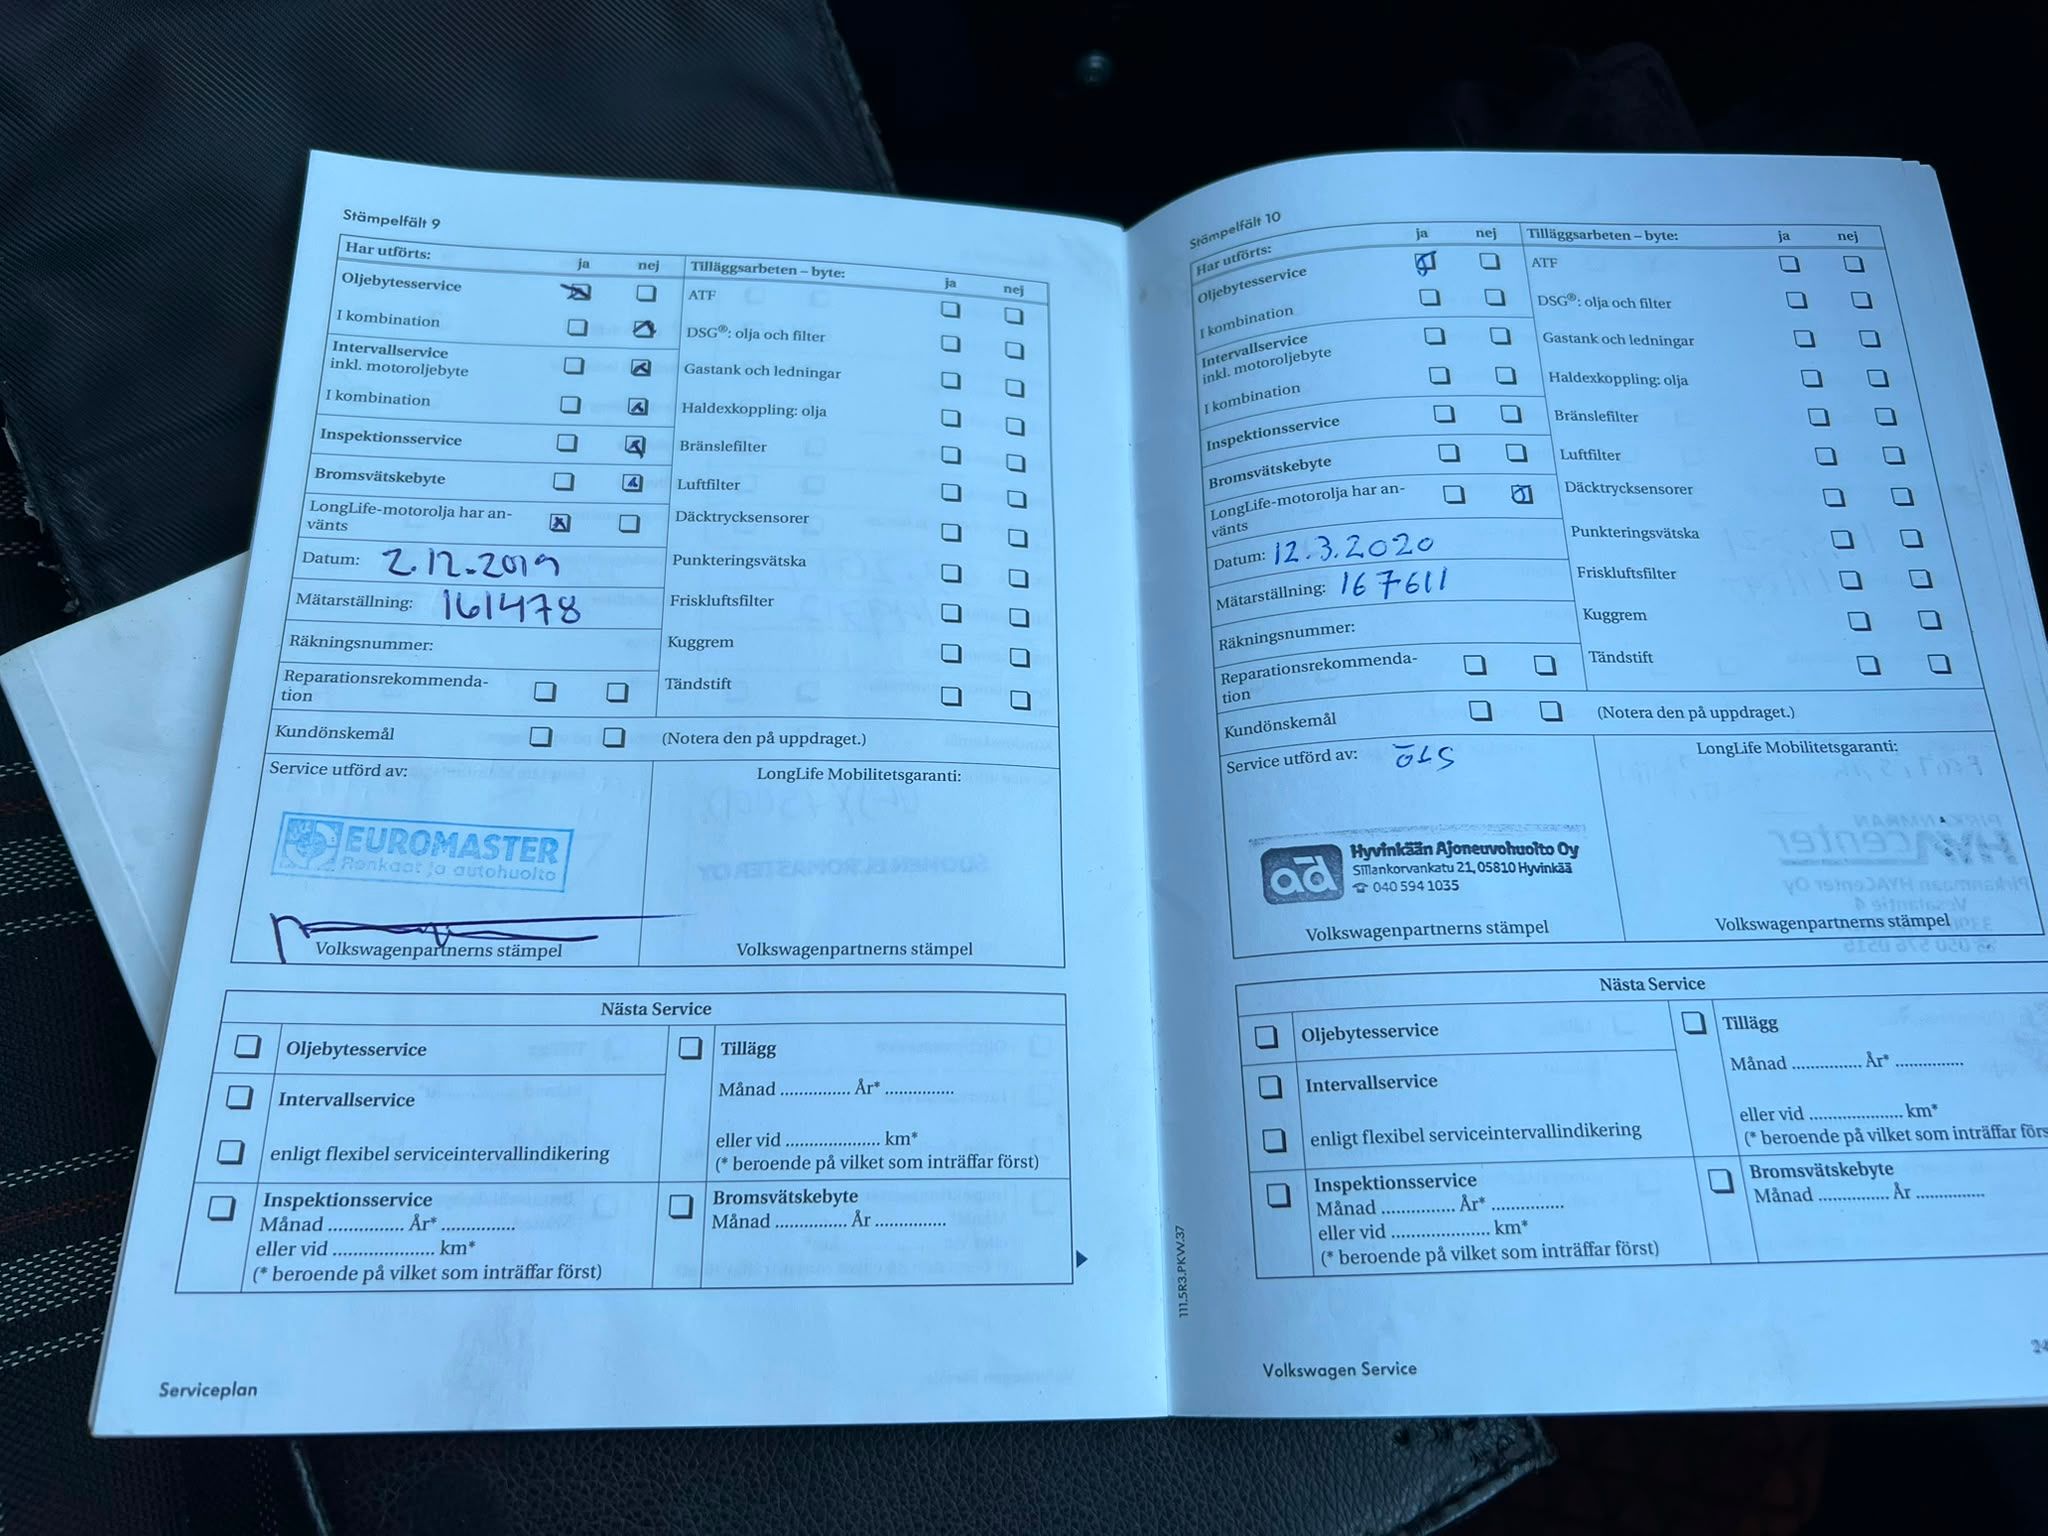 Stämpelfält 9
Har utförts: ja nej
Oljebytesservice
I kombination
Intervallservice
inkl. motoroljebyte
I kombination
Inspektionsservice
Bromsvätskebyte
LongLife-motorolja har an-
vänts
Datum: 2.12.2019
Mätarställning: 161478
Räkningsnummer:
Reparationsrekommenda-
tion
Kundönskemål
Tilläggsarbeten – byte: ja nej
ATF
DSG®: olja och filter
Gastank och ledningar
Haldexkoppling: olja
Bränslefilter
Luftfilter
Däcktrycksensorer
Punkteringsvätska
Friskluftsfilter
Kuggrem
Tändstift
(Notera den på uppdraget.)
Service utförd av:
EUROMASTER
Renkaat ja autohuolto
Volkswagenpartnerns stämpel
LongLife Mobilitetsgaranti:
Volkswagenpartnerns stämpel
Nästa Service
Oljebytesservice
Intervallservice
enligt flexibel serviceintervallindikering
Inspektionsservice
Månad ............... År* ...............
eller vid ..................... km*
(* beroende på vilket som inträffar först)
Tillägg
Månad ............... År* ...............
eller vid ..................... km*
(* beroende på vilket som inträffar först)
Bromsvätskebyte
Månad ............... År ...............
Serviceplan
Stämpelfält 10
Har utförts: ja nej
Oljebytesservice
I kombination
Intervallservice
inkl. motoroljebyte
I kombination
Inspektionsservice
Bromsvätskebyte
LongLife-motorolja har an-
vänts
Datum: 12.3.2020
Mätarställning: 167611
Räkningsnummer:
Reparationsrekommenda-
tion
Kundönskemål
Tilläggsarbeten – byte: ja nej
ATF
DSG®: olja och filter
Gastank och ledningar
Haldexkoppling: olja
Bränslefilter
Luftfilter
Däcktrycksensorer
Punkteringsvätska
Friskluftsfilter
Kuggrem
Tändstift
(Notera den på uppdraget.)
Service utförd av:
ad Hyvinkään Ajoneuvohuolto Oy
Sillankorvankatu 21, 05810 Hyvinkää
☎ 040 594 1035
Volkswagenpartnerns stämpel
LongLife Mobilitetsgaranti:
Volkswagenpartnerns stämpel
Nästa Service
Oljebytesservice
Intervallservice
enligt flexibel serviceintervallindikering
Inspektionsservice
Månad ............... År* ...............
eller vid ..................... km*
(* beroende på vilket som inträffar först)
Tillägg
Månad ............... År* ...............
eller vid ..................... km*
(* beroende på vilket som inträffar förs
Bromsvätskebyte
Månad ............... År ...............
111.5R3.PKW.37
Volkswagen Service